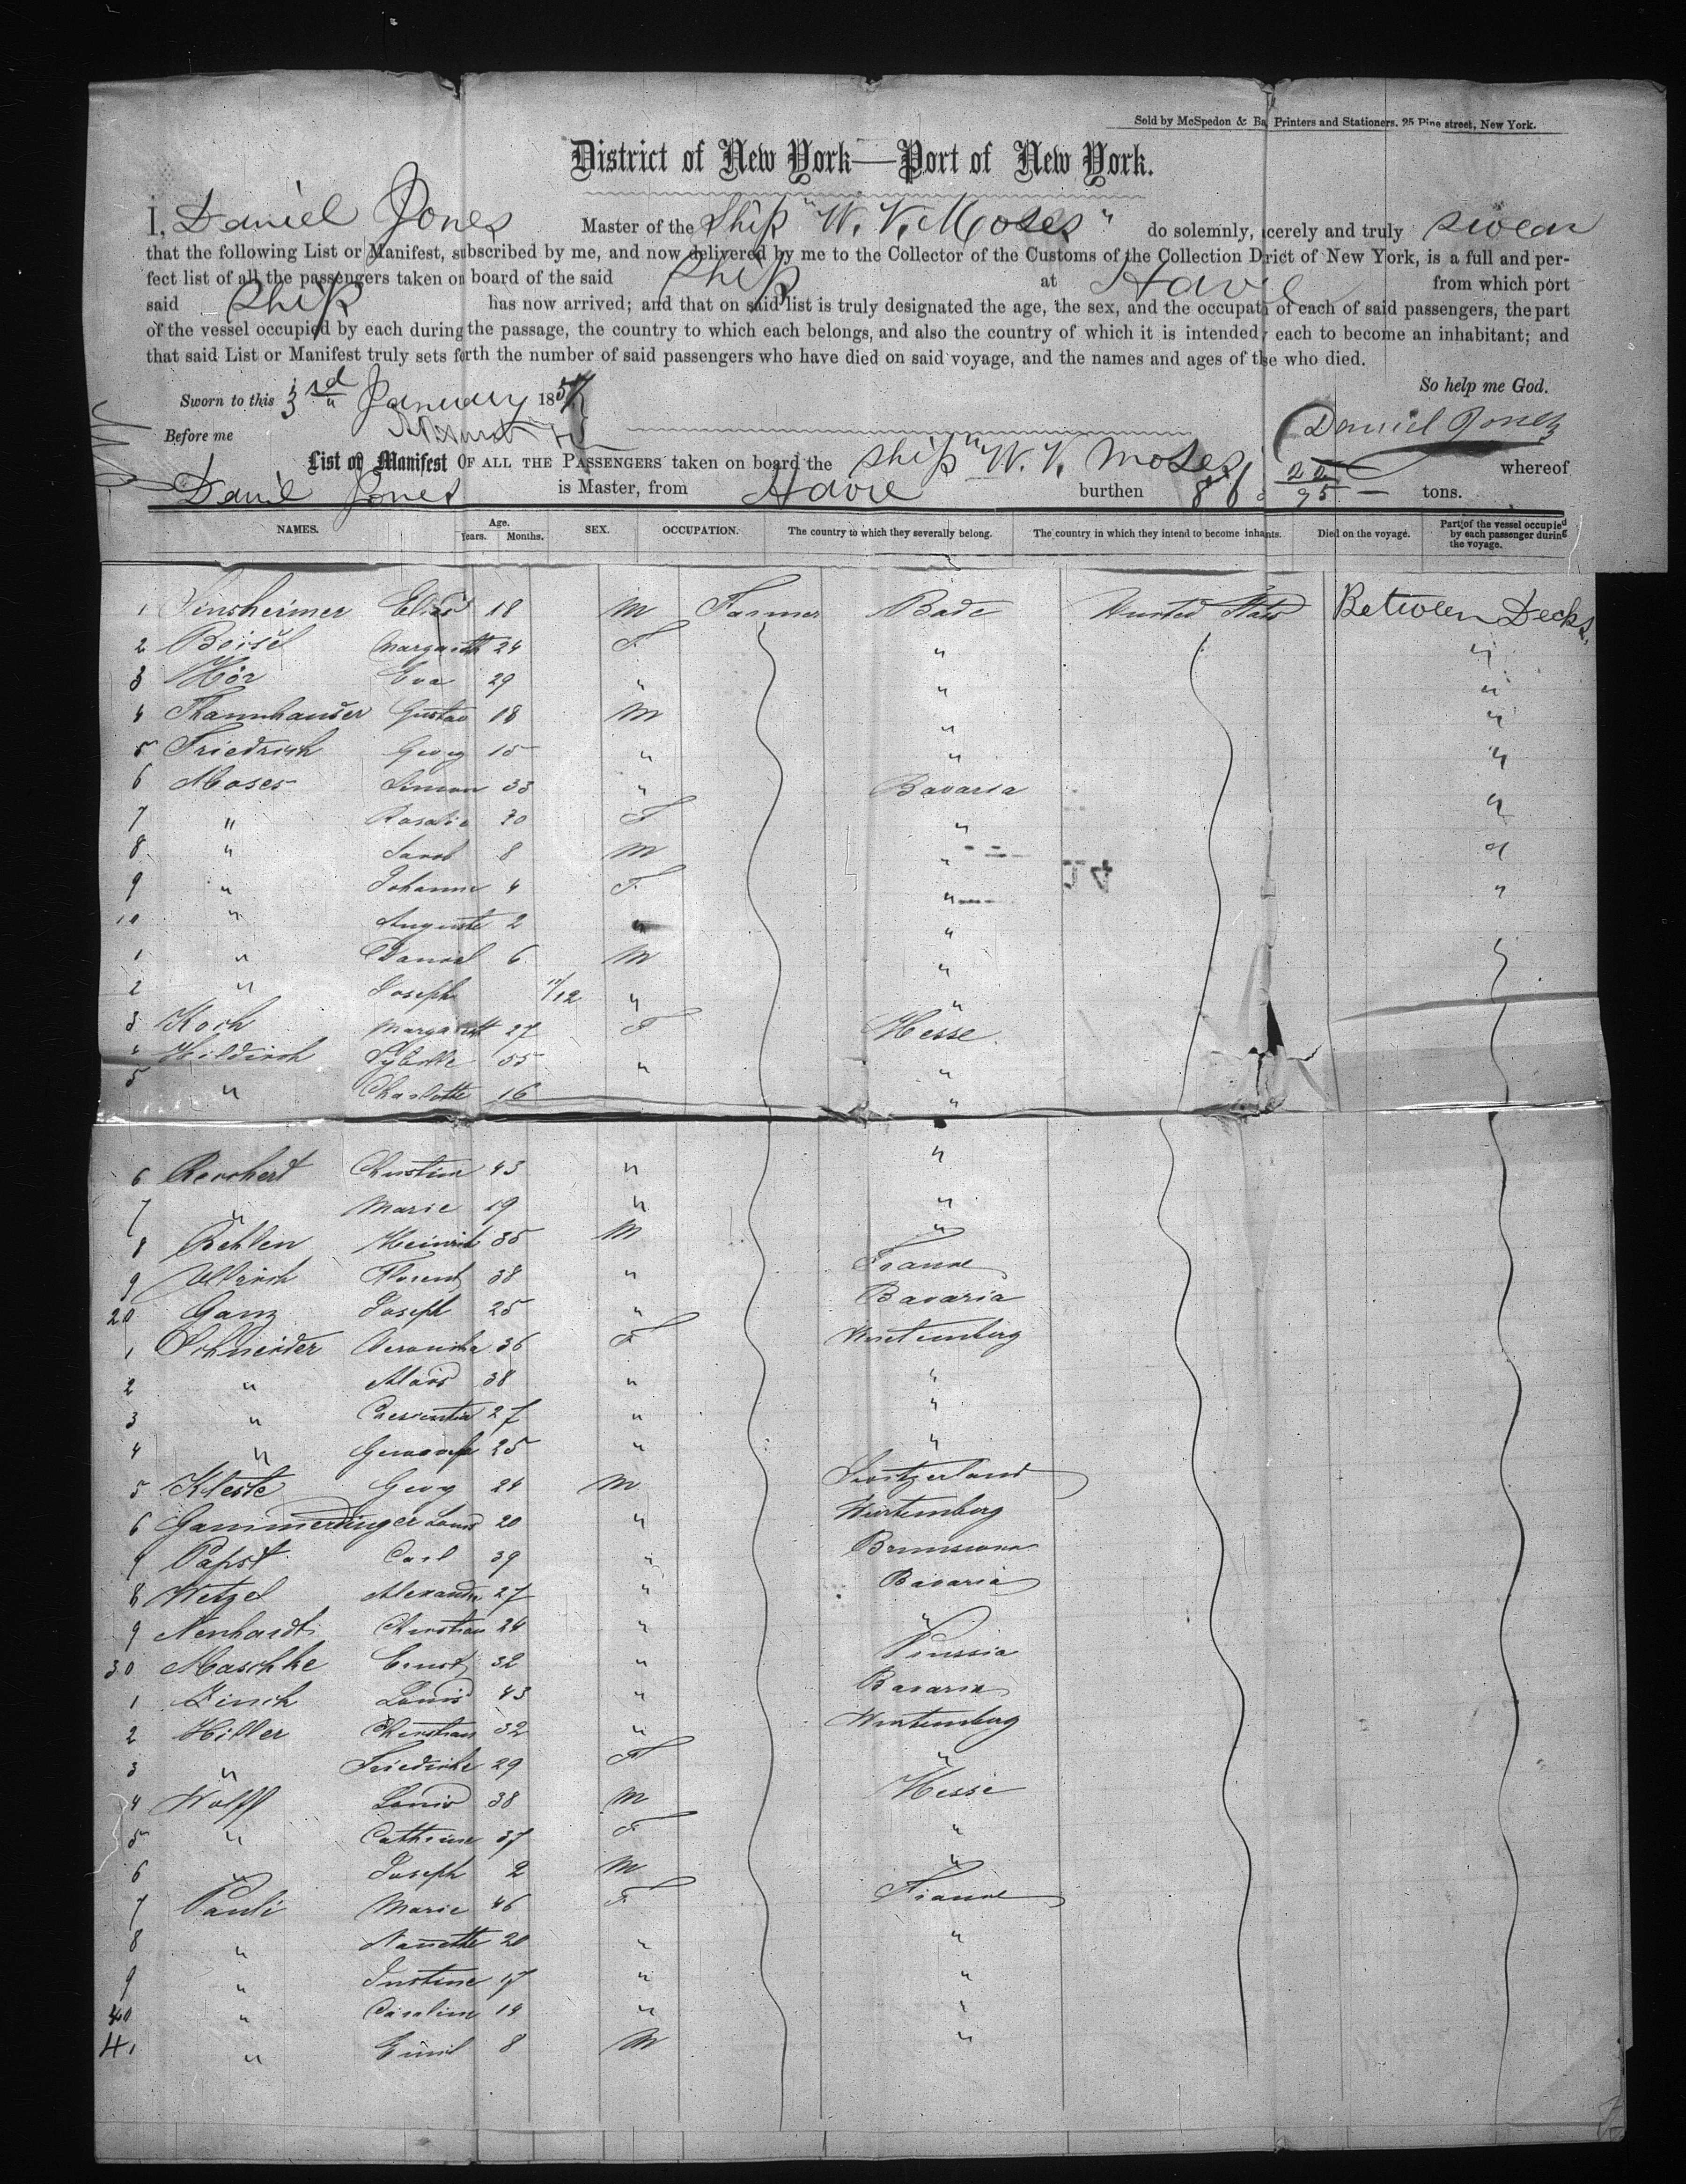 Sold by McSpedon & Ba Printers and Stationers. 25 Pine street, New York.
District of New York—Port of New York.
I, Daniel Jones Master of the Ship "W. V. Moses" do solemnly, cerely and truly swear
that the following List or Manifest, subscribed by me, and now delivered by me to the Collector of the Customs of the Collection Drict of New York, is a full and per-
fect list of all the passengers taken on board of the said Ship at Havre from which port
said Ship has now arrived; and that on said list is truly designated the age, the sex, and the occupati of each of said passengers, the part
of the vessel occupied by each during the passage, the country to which each belongs, and also the country of which it is intended each to become an inhabitant; and
that said List or Manifest truly sets forth the number of said passengers who have died on said voyage, and the names and ages of the who died.
So help me God.
Sworn to this 3rd January 1857
Daniel Jones
Before me
List or Manifest OF ALL THE PASSENGERS taken on board the ship "W. V. Moses whereof
Daniel Jones is Master, from Havre burthen tons.
NAMES. Age. Years. Months. SEX. OCCUPATION. The country to which they severally belong. The country in which they intend to become inhabitants. Died on the voyage. Part of the vessel occupied by each passenger during the voyage.
1 Sinsheimer Elias 18 M Farmer Bade United States Between Decks
2 Boisel Margareth 24 F " "
3 Hör Eva 29 " " "
4 Thannhauser Gustav 18 M " "
5 Friedrich Georg 15 " " "
6 Moses Simon 33 " Bavaria "
7 " Rosalie 30 F " "
8 " Jacob 8 M " "
9 " Johanna 4 F " "
10 " Auguste 2 " "
1 " Daniel 6 M "
2 " Joseph 11/12 " "
3 Koch Margareth 27 F Hesse
4 Hildirch Sybille 55 " "
5 " Charlotte 16 "
6 Reichert Christine 43 " "
7 " Marie 19 " "
8 Behlen Heinrich 35 M "
9 Ullrich Florent 38 " France
20 Ganz Joseph 25 " Bavaria
1 Schneider Veronika 36 F Wurtemberg
2 " Alois 38 " "
3 " Crescentia 27 " "
4 " 25 " "
5 Kleste Georg 24 M Switzerland
6 Gammerdinger Louis 20 " Wurtemberg
7 Papst Carl 39 "
8 Wetzel Alexander 27 " Bavaria
9 Nenhardt Christian 24 " "
30 Maschke Ernst 32 " Prussia
1 Zinck Louis 43 " Bavaria
2 Hiller Christian 32 " Wurtemberg
3 " Friedrike 29 F "
4 Wolff Louis 38 M Hesse
5 " Catherine 37 F "
6 " Joseph 2 M "
7 Pauli Marie 46 F France
8 " Nannette 20 " "
9 " Justine 17 " "
40 " Caroline 14 " "
41 " Emil 8 M "